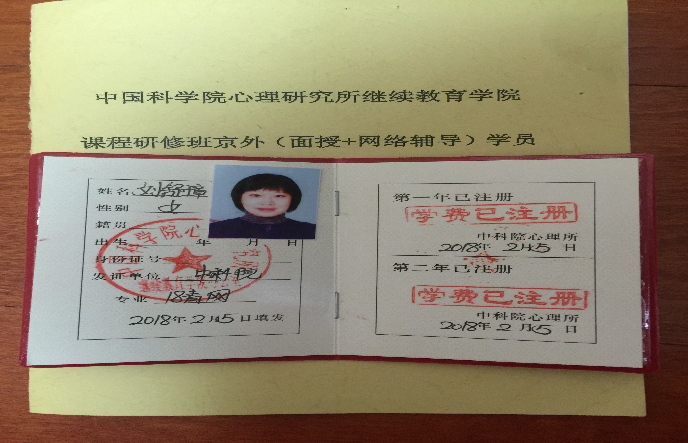 中国科学院心理研究所继续教育学院
课程研修班京外（面授+网络辅导）学员
姓名 刘
性别 女
籍贯
出生 年 月 日
身份证号
发证单位 中科院
专业 18青网
2018年2月15日填发
学院心
第一年已注册
学费已注册
中科院心理所
2018年2月15日
第二年已注册
学费已注册
中科院心理所
2018年2月15日